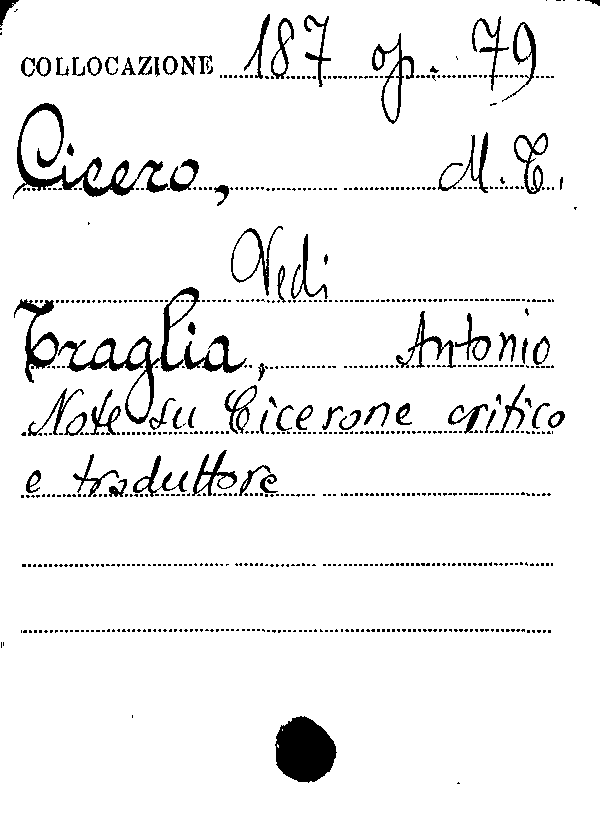 COLLOCAZIONE 187 op. 79
Cicero, M. T.
Vedi
Traglia, Antonio
Note su Cicerone critico
e traduttore